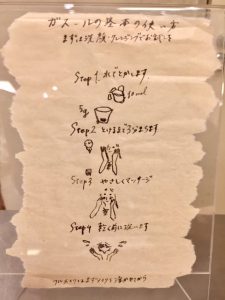 ガスールの基本の使い方
まずは洗顔・クレンジングでお試しを
Step 1. 水でとかします
10ml
5g
Step 2 とけるまで3分まちます
Step 3 やさしくマッサージ
Step 4 乾く前に洗います